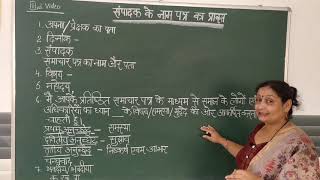 Video
संपादक के नाम पत्र का प्रारूप
1. अपना/प्रेषक का पता
2. दिनांक -
3. संपादक
समाचार पत्र का नाम और पता
4. विषय -
5. महोदय,
6. मैं आपके प्रतिष्ठित समाचार पत्र के माध्यम से समाज के लोगों
अधिकारियों का ध्यान के विषय/समस्या/मुद्दे की ओर आकर्षित
चाहती हूँ।
प्रथम अनुच्छेद - समस्या
द्वितीय अनुच्छेद - सुझाव
तृतीय अनुच्छेद - निष्कर्ष एवम् आभार
धन्यवाद
7. भवदीय/भवदीया
क. ख. ग.